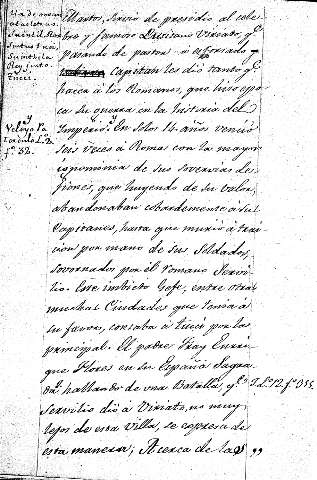 Martos, Sirvio de presidio al cele-
bre y famoso Lusitano Viriato, q.e
pasando de pastor a esforzado
Capitan les dió tanto q.e
hacer á los Romanos, que hizo epo-
ca su guerra en la historia del
Imperio. En solos 14 años venció
seis veces á Roma con la mayor
ignominia de sus sovervias le-
giones, que huyendo de su valor,
abandonaban cobardemente á sus
Capitanes, hasta que murió á trai-
cion por mano de sus Soldados,
sovornados por el romano Servi-
lio. Este imbicto Gefe, entre otras
muchas Ciudades que tenia á
su favor, contaba á tucci por la
principal. El padre Fray Enrri-
que Florez en su España Sagra-
da, hablando de una Batalla, q.e
Servilio dió á Viriato, no muy
lejos de esta Villa, se expresa de
esta manera; Acerca de las
Veleyo Pa
terculo L.º 2
f.º 32.
T. L. 12 f.º 355.